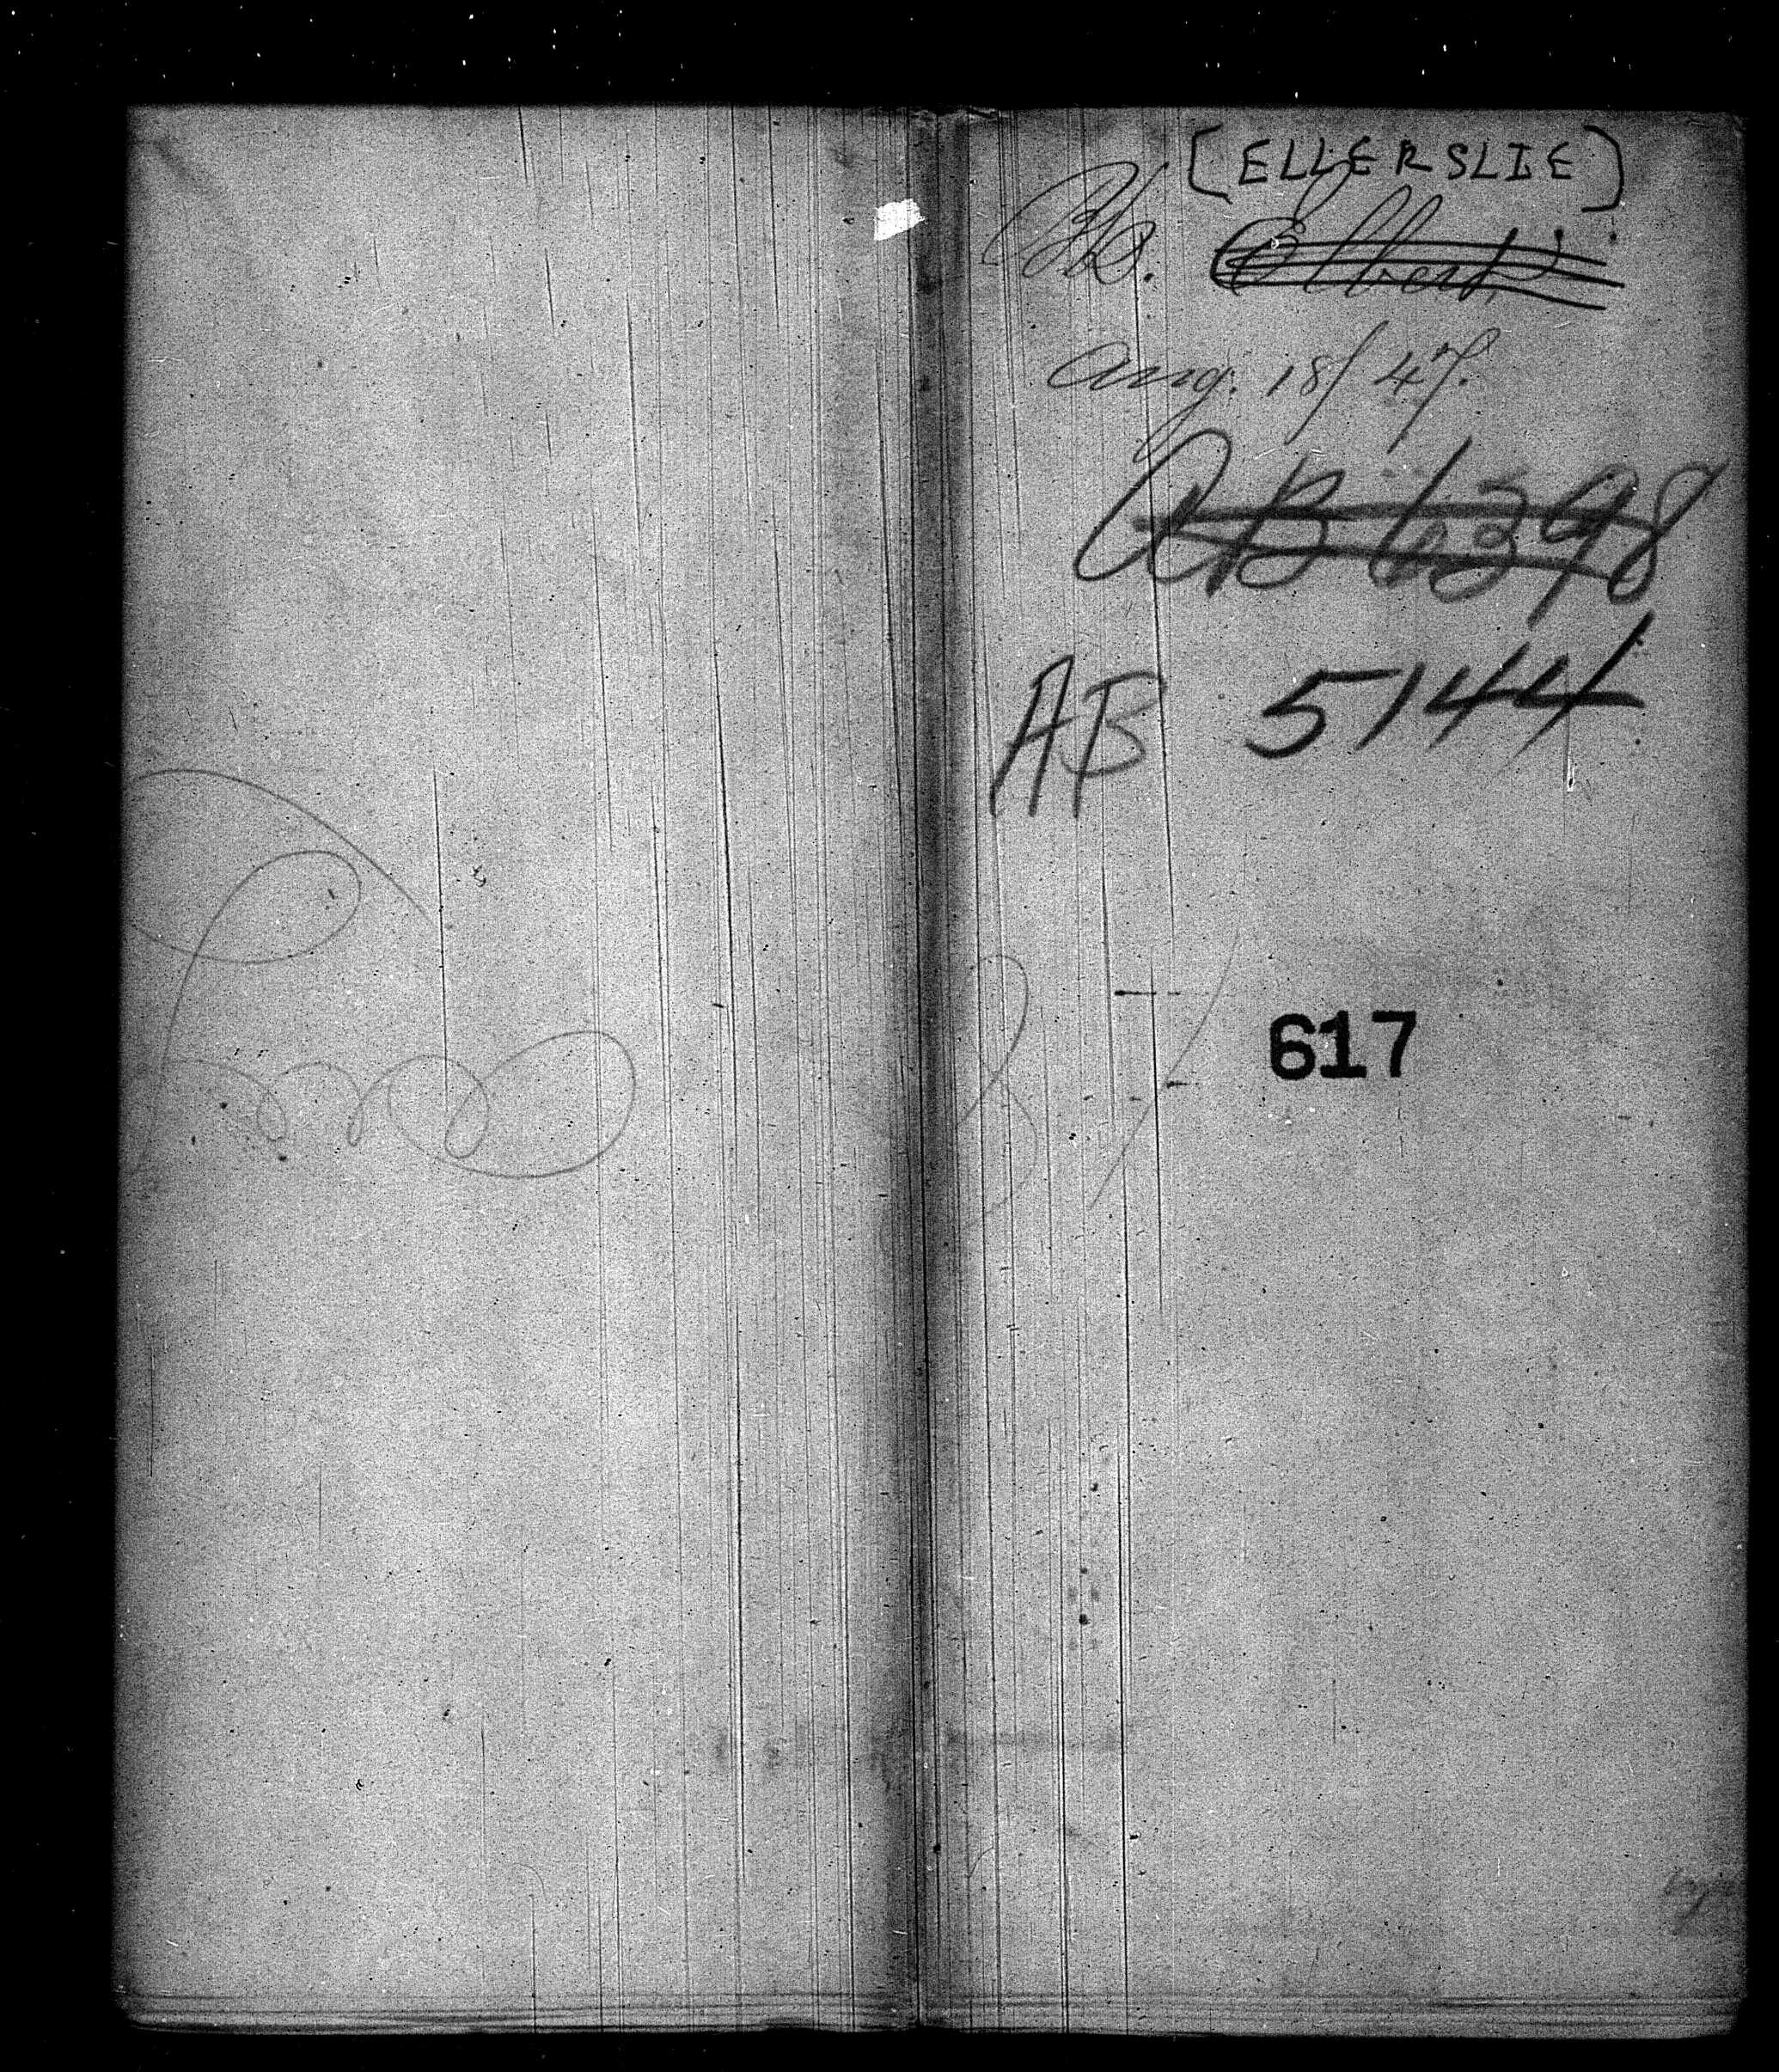 [ELLERSLIE]
Bk. Elbert
Aug. 18/47.
AB 6398
AB 5144
617